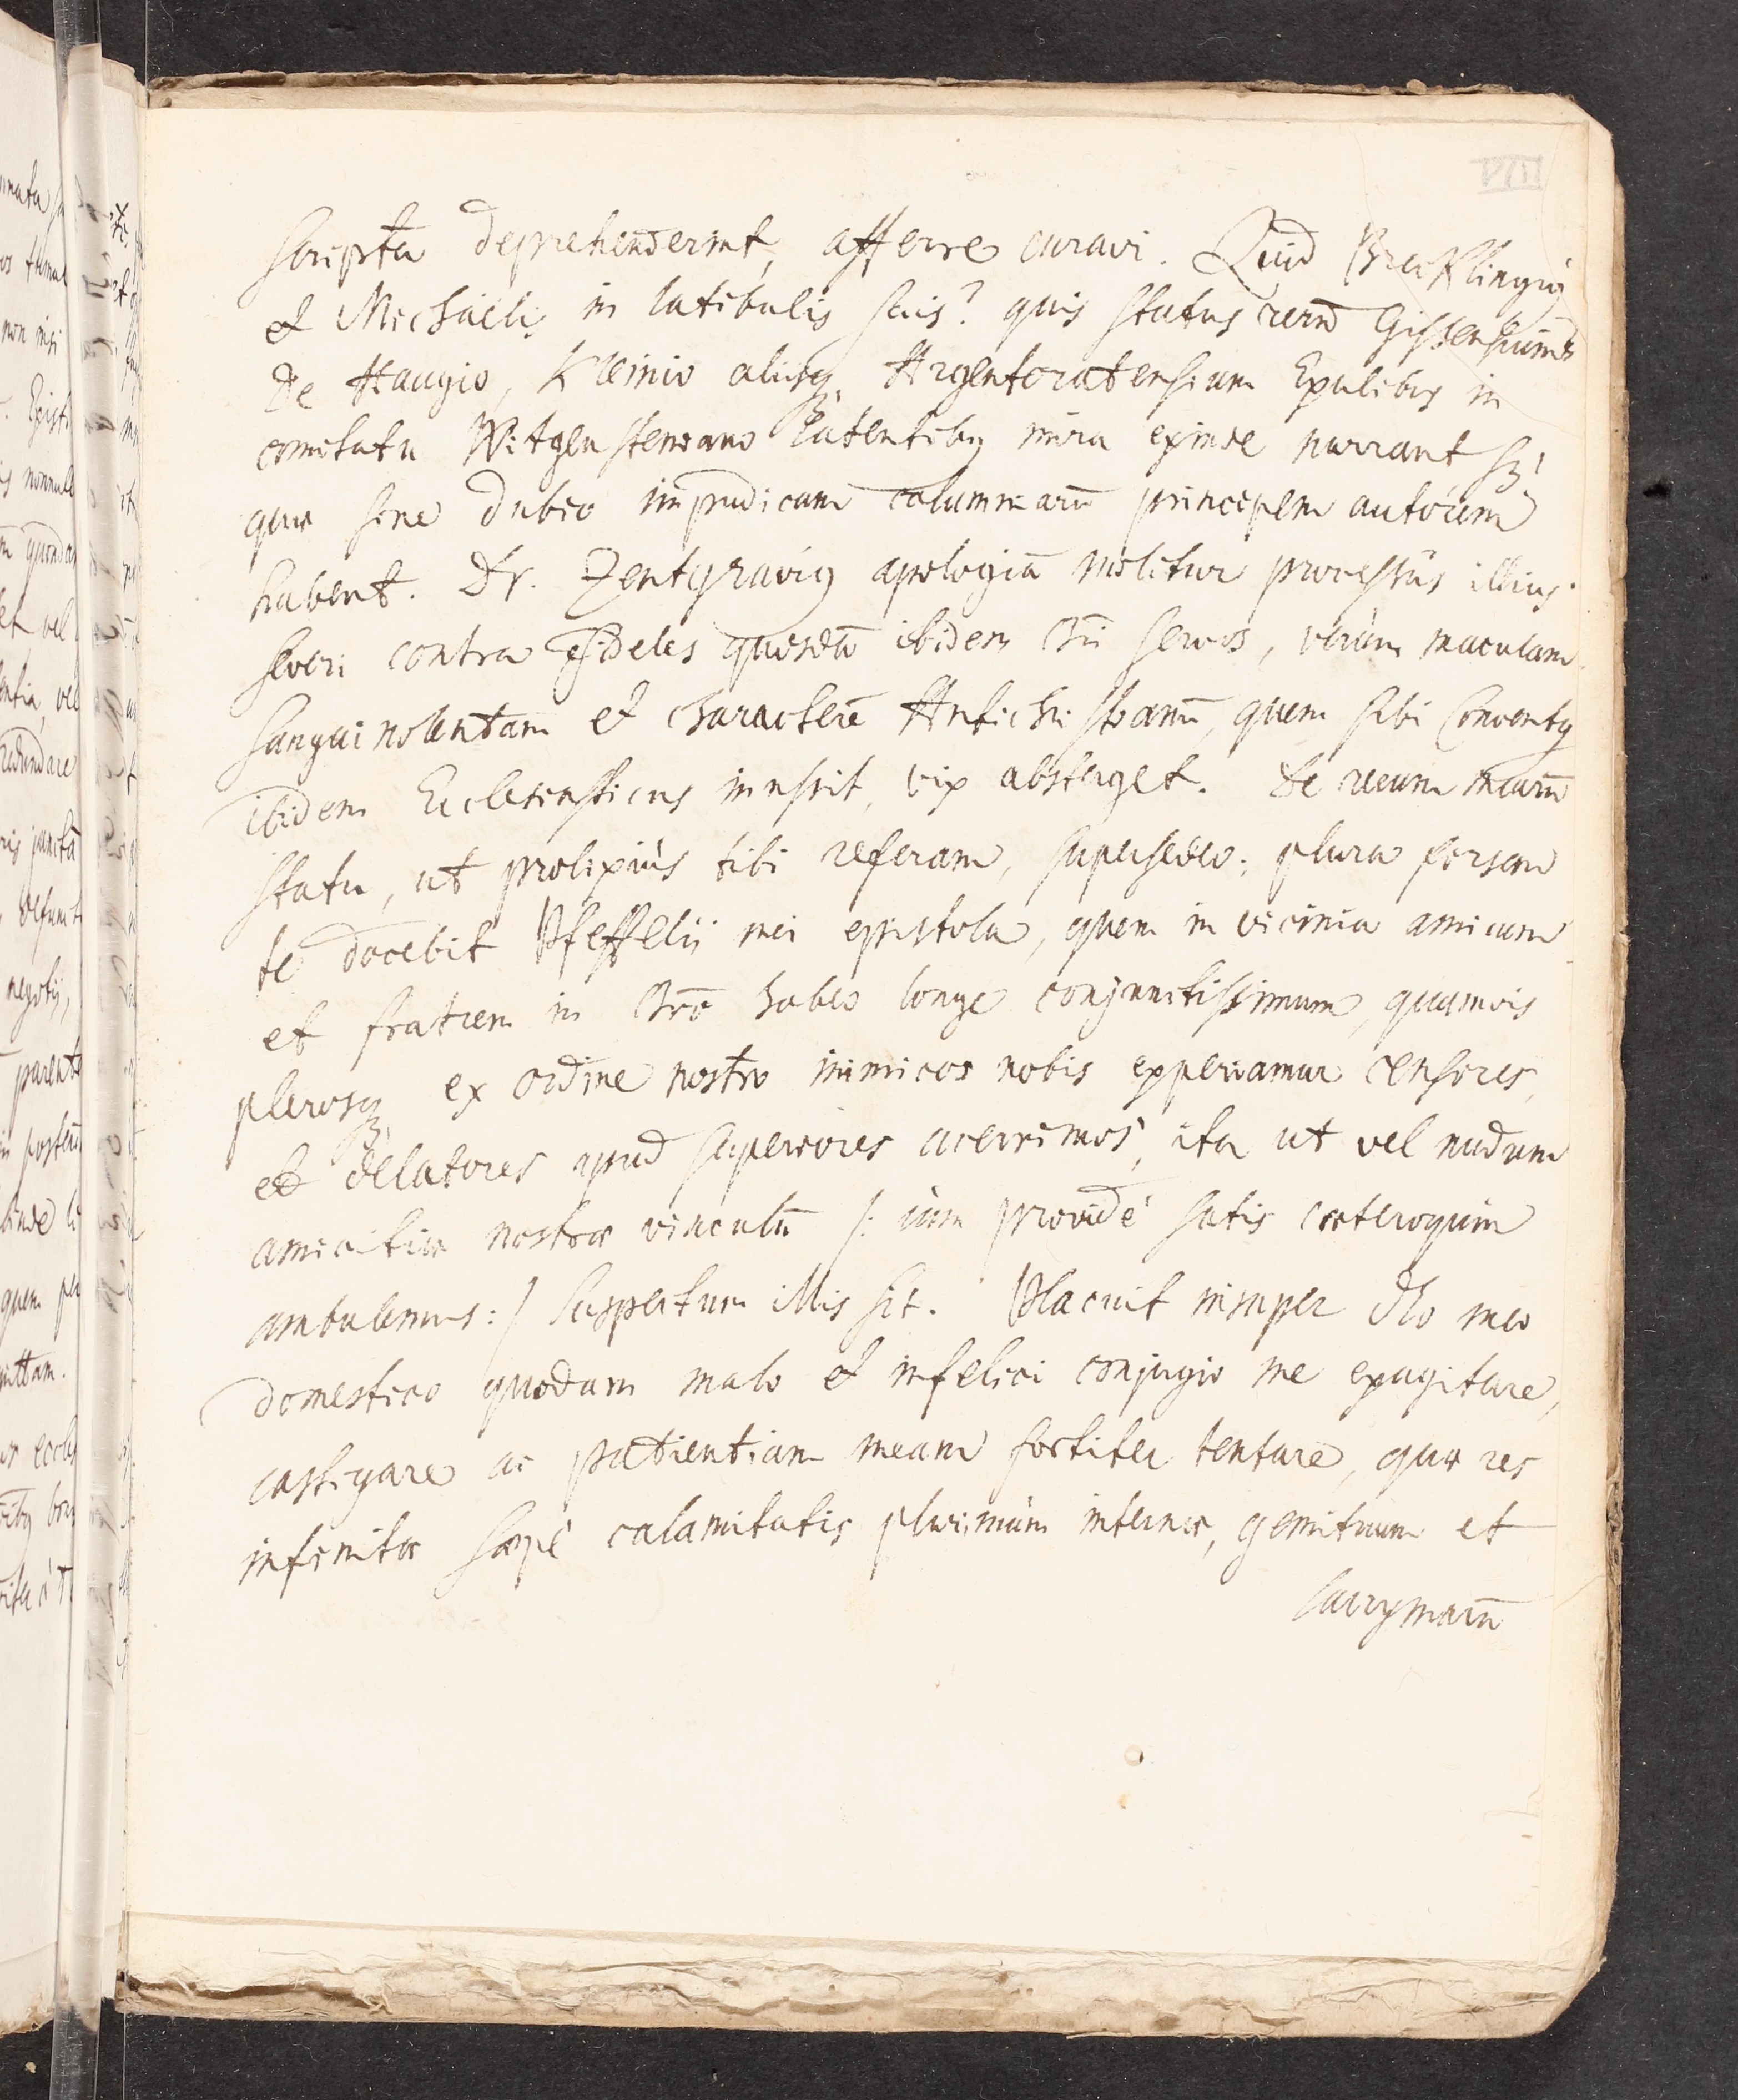 VIII
scripta deprehenderint, afferre curavi. Quid Brecklingiꝰ
et Michaëlis in latibulis suis? quis status rerū Gissensium?
de Haugio, Kleinio aliisq; Argentoratensium Exulibꝰ in
comitatu Witgensteniano latentibꝰ mira exinde narrant, sz
quæ sine dubio impudicam calumniarū principem autorem
habent. Dr. Zentgraviꝰ apologiā molitur processûs illius
severi contra fideles quosdā ibidem Chri servos, verùm maculam
sanguinolentam et characterē Antichristianū, quem sibi Conventꝰ
ibidem Ecclesiasticus inussit, vix absterget. De rerum mearū
statu, ut prolixiùs tibi referam, supersedeo: plura forsan
te docebit Pfeffelii mei epistola, quem in vicinia amicum
et fratrem in Chrō habeo longe conjunctissimum, quamvis
plerosq; ex ordine nostro inimicos nobis experiamur censores,
et delatores apud superiores acerrimos, ita ut vel nudum
amicitiæ nostræ vinculū /: cùm providè satis cæteroquin
ambulemus:/ suspectum illis sit. Placuit nuper Dō meo
domestico quodam malo et infelici conjugio me exagitare,
castigare ac patientiam meam fortiter tentare, quæ res
infinitæ sæpè calamitatis plurimùm internæ, gemituum et
lacrymarū